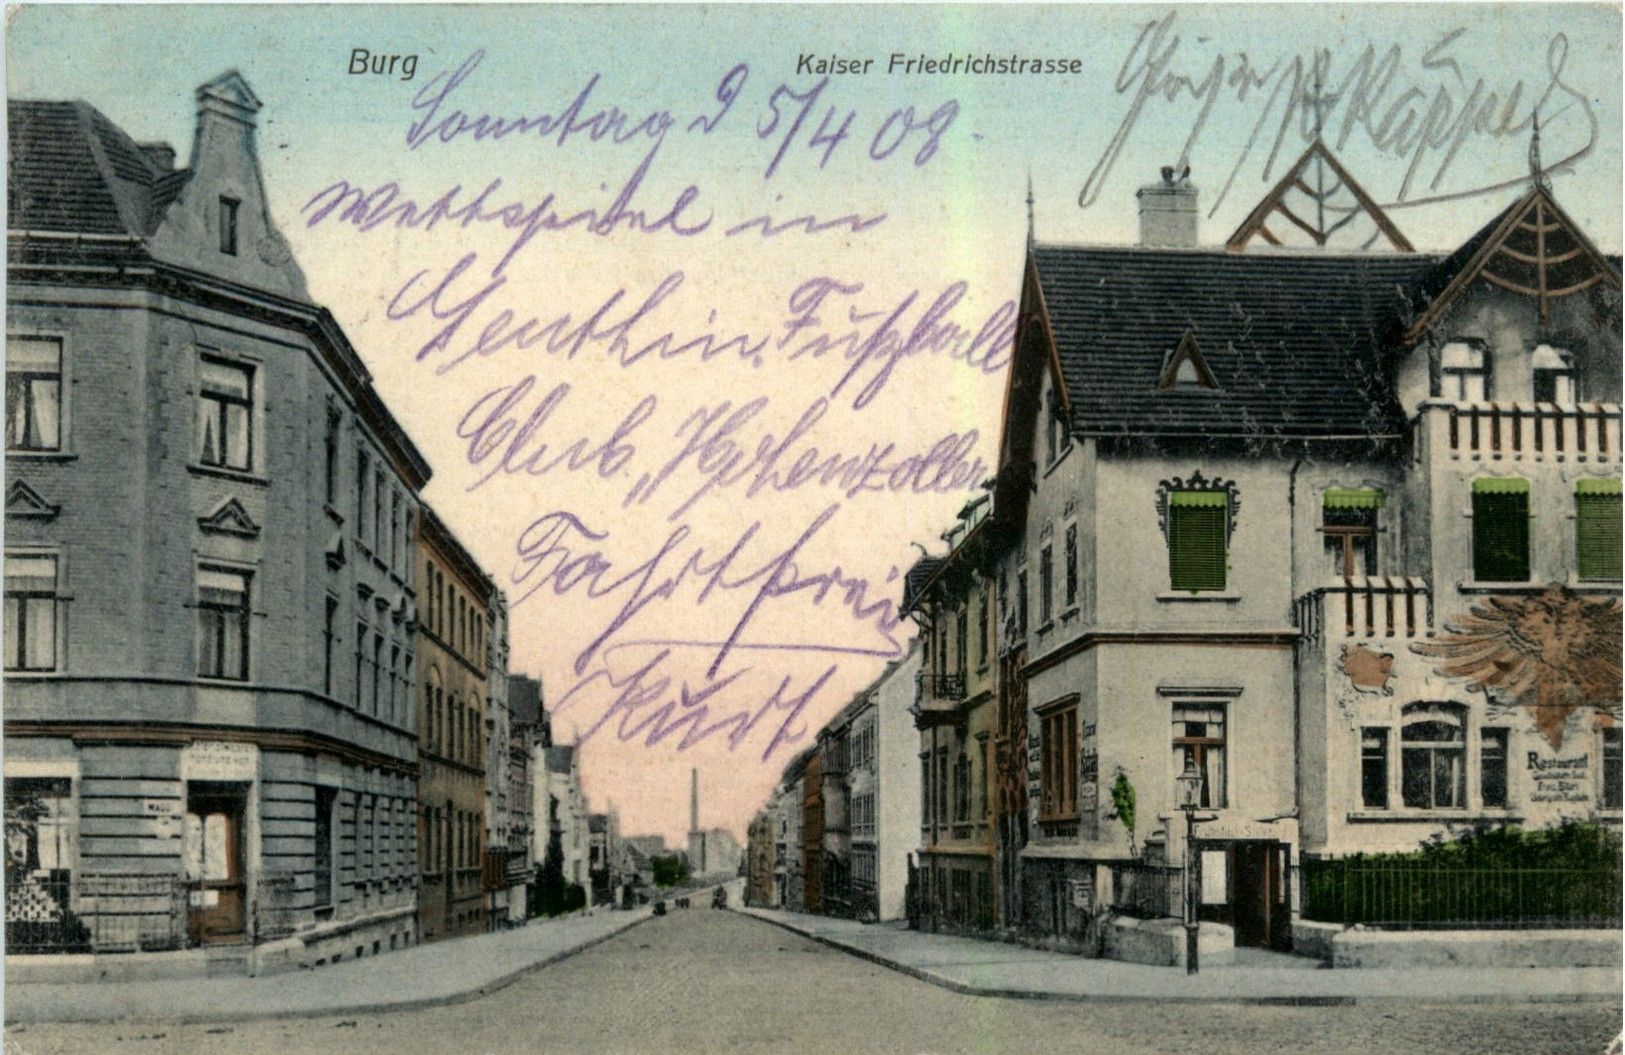 Burg
Kaiser Friedrichstrasse
Sonntag d 5/4 08.
Wettspiel in
Genthin. Fußball
Club. „Hohenzoller
Fahrtpreis
Kurt
Käppel
Restaurant